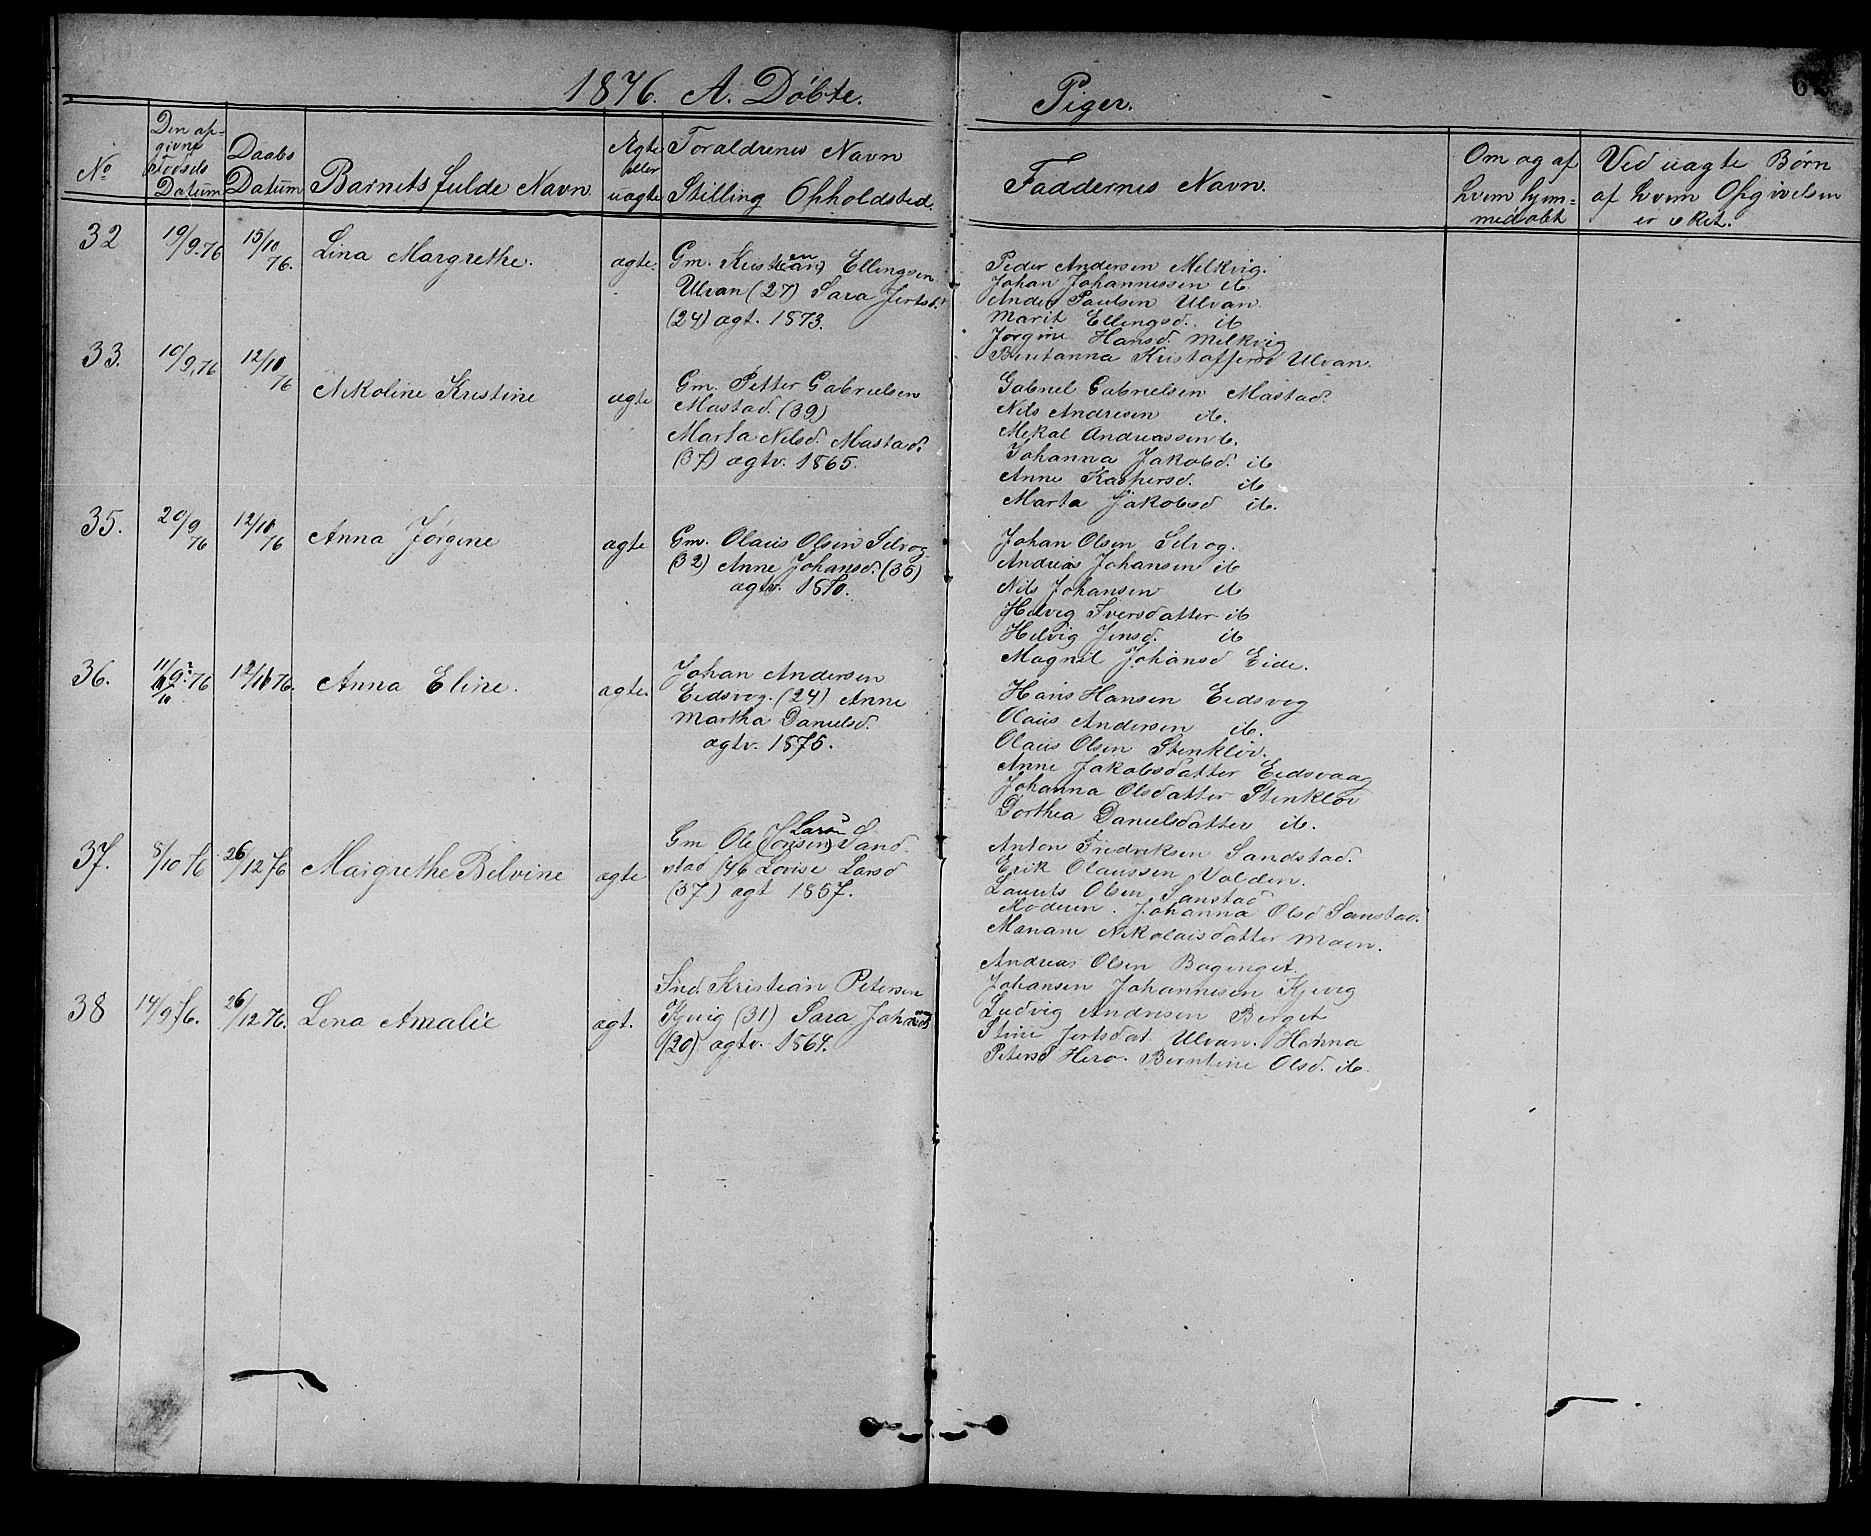 1876. A. Döbte.
Piger.
No
Den op-
givne
Fødsels
Datum
Daabs
Datum
Barnets fulde Navn.
Ægte
eller
uægte
Forældrenes Navn
Stilling Opholdsted.
Faddernes Navn.
Om og af
hvem hjem=
medøbt
Ved uægte Børn
af hvem Opgivelsen
er sket.
32
19/9.76
15/10 76.
Lina Margrethe.
ægte.
Gm. Kristian Ellingsen
Ulvan (27) Sara Jertsd.
(24) ægt. 1873.
Peder Andersen Melkvig.
Johan Johannessen ib.
Anders Paulsen Ulvan.
Marit Ellingsd. ib
Jørgine Hansd. Melkvig
Berntanna Kristoffersd Ulvan.
33.
10/9,76
12/11 76
Nikoline Kristine
ægte
Gm. Petter Gabrielsen
Mastad. (39)
Marta Nilsd. Mastad.
(37) ægtv. 1865.
Gabriel Gabrielsen Mastad.
Nils Andresen ib.
Mikal Andreassen ib.
Johanna Jakobsd. ib
Anne Kaspersd. ib
Marta Jakobsd ib.
35.
20/9 76
12/11 76
Anna Jørgine
ægte
Gm. Olaus Olsen Selvog
(32) Anne Johansd. (35)
ægtv. 1870.
Johan Olsen Selvog.
Andreas Johansen ib
Nils Johansen ib
Helvig Iversdatter ib
Helvig Jensd. ib
Magnil Johansd Eide.
36.
76
12/11 76.
Anna Eline.
ægte.
Johan Andersen
Eidsvog. (24) Anne
Martha Danielsd.
ægtv. 1875.
Hans Hansen Eidsvog
Olaus Andersen ib.
Olaus Olsen Stenkløv.
Anne Jakobsdatter Eidsvaag
Johanna Olsdatter Stenkløv
Dorthea Danielsdatter ib.
37.
8/10 76
26/12 76
Margrethe Belvine
ægte
Gm Ole Larsn Sand
stad (46 Lovise Larsd
(37) ægt 1857.
Anton Fredriksen Sandstad.
Erik Olaussen Valden.
Laurits Olsen Sanstad
Moderen. Johanna Olsd Sanstad.
Mariane Nikolaisdatter Moen.
38
14/9 76.
26/12 76.
Lena Amalie
ægt.
Ind. Kristian Petersen
Kjevig (31) Sara
(20) ægtv. 1864.
Andreas Olsen Bogenget.
Johansen Johannesen Kjevig
Ludvig Andresen Berget
Stine Jertsdat. Ulvan. Hanna
Petersd Hero. Berntine Olsd. ib.